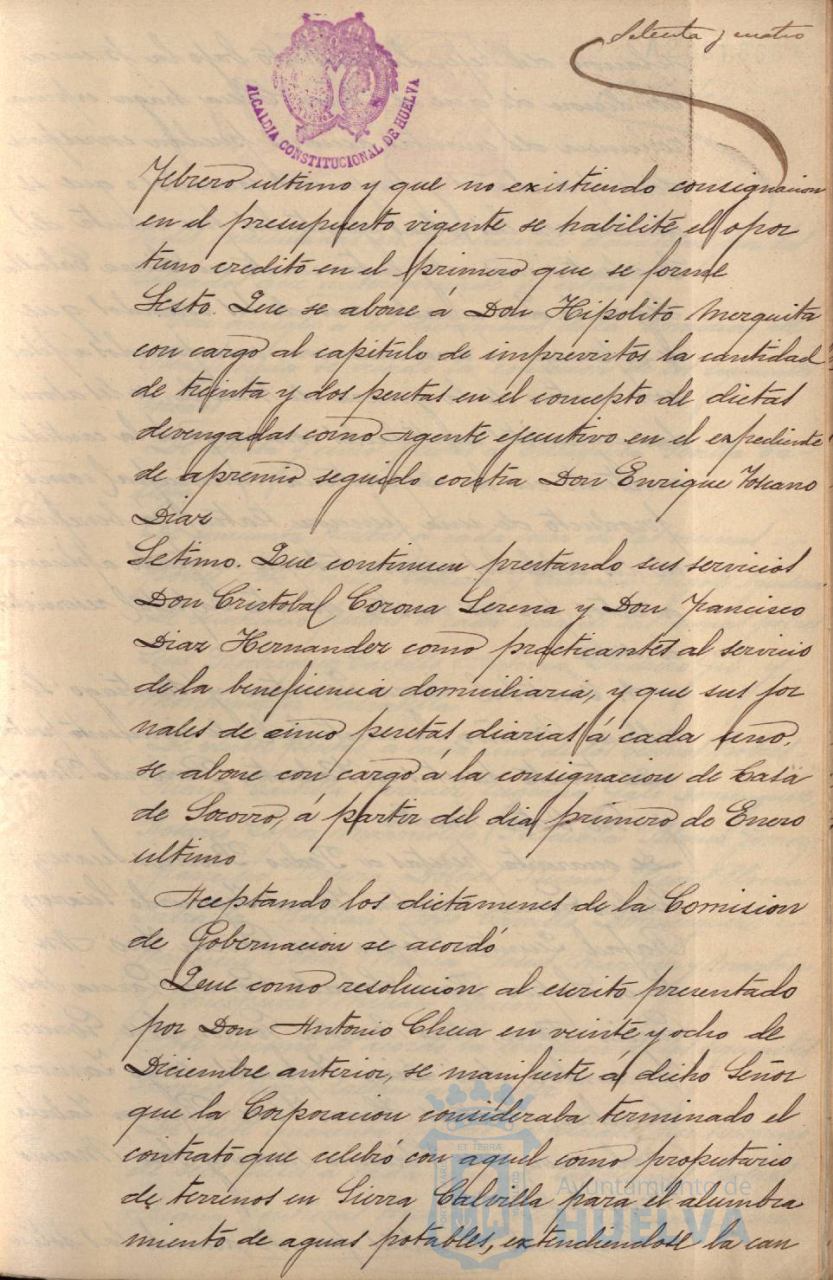 Setenta y cuatro
ALCALDIA CONSTITUCIONAL DE HUELVA
Febrero ultimo y que no existiendo consignacion
en el presupuesto vigente se habilite el opor
tuno credito en el primero que se forme
Sesto. Que se abone á Don Hipolito Mezquita
con cargo al capitulo de imprevistos la cantidad
de treinta y dos pesetas en el concepto de dietas
devengadas como Agente ejecutivo en el expediente
de apremio seguido contra Don Enrique Toscano
Diaz
Setimo. Que continuen prestando sus servicios
Don Cristobal Corona Serena y Don Francisco
Diaz Hernandez como practicantes al servicio
de la beneficencia domiciliaria, y que sus jor
nales de cinco pesetas diarias á cada uno,
se abone con cargo á la consignacion de Casa
de Socorro, á partir del dia primero de Enero
ultimo
Aceptando los dictámenes de la Comision
de Gobernacion se acordó
Que como resolucion al escrito presentado
por Don Antonio Checa en veinte y ocho de
Diciembre anterior, se manifieste á dicho Señor
que la Corporacion consideraba terminado el
contrato que celebró con aquel como propietario
de terrenos en Sierra Calvilla para el alumbra
miento de aguas potables, extendiendose la can
Ayuntamiento de
HUELVA